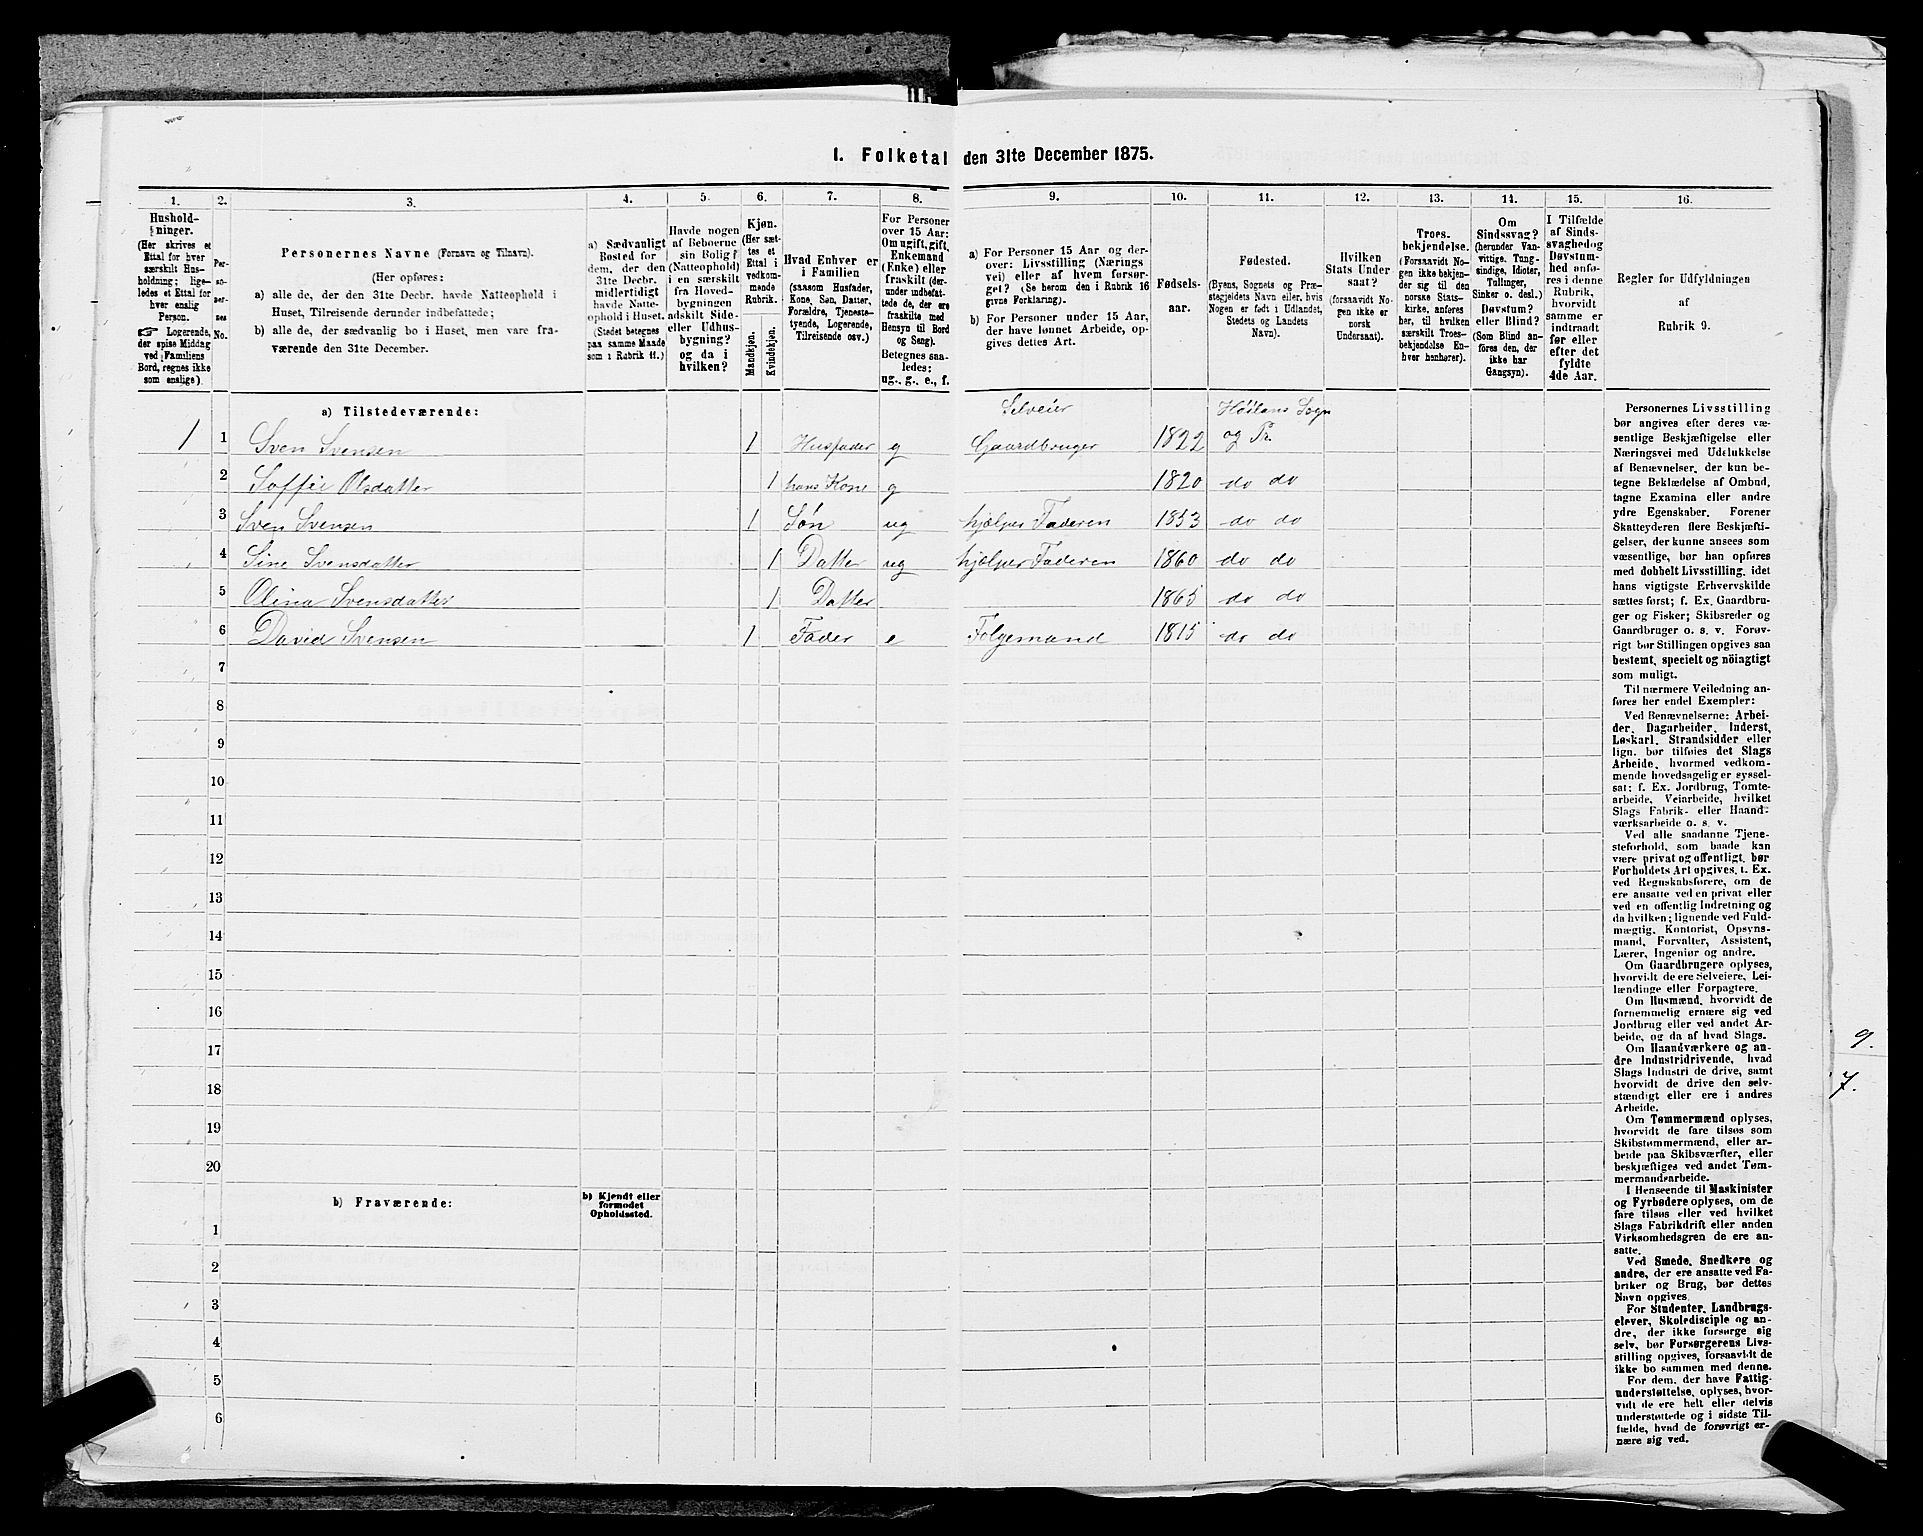 I. Folketal den 31te December 1875.
1.
Hushold-
ninger.
(Her skrives et
Ettal for hver
særskilt Hus-
holdning; lige-
ledes et Ettal for
hver enslig
Person.
☞ Logerende,
der spise Middag
ved Familiens
Bord, regnes ikke
som enslige).
2.
Per-
so-
ner-
nes
No.
3.
Personernes Navne (Fornavn og Tilnavn).
(Her opføres:
a) alle de, der den 31te Decbr. havde Natteophold i
Huset, Tilreisende derunder indbefattede;
b) alle de, der sædvanlig bo i Huset, men vare fra-
værende den 31te December.
4.
a) Sædvanligt
Bosted for
dem, der den
31te Decbr.
midlertidigt
havde Natte-
ophold i Huset.
(Stedet betegnes
paa samme Maade
som i Rubrik 11.)
5.
Havde nogen
af Beboerne
sin Bolig
(Natteophold)
i en særskilt
fra Hoved-
bygningen
adskilt Side-
eller Udhus-
bygning?
og da i
hvilken?
6.
Kjøn.
(Her sæt-
tes et
Ettal i
vedkom-
mende
Rubrik.
Mandkjøn.
Kvindekjøn.
7.
Hvad Enhver er
i Familien
(saasom Husfader,
Kone, Søn, Datter,
Forældre, Tjeneste-
tyende, Logerende,
Tilreisende osv.)
8.
For Personer
over 15 Aar:
Om ugift, gift,
Enkemand
(Enke) eller
fraskilt (der-
under indbefat-
tede de, der ere
fraskilte med
Hensyn til Bord
og Seng).
Betegnes saa-
ledes:
ug., g., e., f.
9.
a) For Personer 15 Aar og der-
over: Livsstilling (Nærings
vei) eller af hvem forsør-
get? (Se herom den i Rubrik 16
givne Forklaring).
b) For Personer under 15 Aar,
der have lønnet Arbeide, op-
gives dettes Art.
10.
Fødsels-
aar.
11.
Fødested.
(Byens, Sognets og Præ-
stegjeldets Navn eller, hvis
Nogen er født i Udlandet,
Stedets og Landets
Navn).
12.
Hvilken
Stats Under-
saat?
(forsaavidt No-
gen ikke er
norsk
Undersaat).
13.
Troes-
bekjendelse.
(Forsaavidt No-
gen ikke bekjen-
der sig til den
norske Stats-
kirke, anføres
her, til hvilken
særskilt Troes-
bekjendelse En-
hver henhører).
14.
Om
Sindssvag?
(herunder Van-
vittige, Tung-
sindige, Idioter,
Tullinger,
Sinker o. desl.)
Døvstum?
eller Blind?
(Som Blind an-
føres den, der
ikke har
Gangsyn).
15.
I Tilfælde
af Sinds-
svaghed og
Døvstum-
hed anfø-
res i denne
Rubrik,
hvorvidt
samme er
indtraadt
før eller
efter det
fyldte
4de Aar.
16.
Regler for Udfyldningen
af
Rubrik 9.
a) Tilstedeværende:
Selveier Høilans Sogn
1 1 Sven Svensen 1 Husfader g Gaardbruger 1822 og Pr.
2 Soffie Olsdatter 1 hans Kone g 1820 do do
3 Sven Svensen 1 Søn ug hjælper Faderen 1853 do do
4 Sine Svensdatter 1 Datter ug hjælper Faderen 1860 do do
5 Olina Svensdatter 1 Datter 1865 do do
6 David Svensen 1 Fader e Folgemand 1815 do do
7
8
9
10
11
12
13
14
15
16
17
18
19
20
b) Fraværende:
b) Kjendt eller
formodet
Opholdssted.
1
2
3
4
5
6
Personernes Livsstilling
bør angives efter deres væ-
sentlige Beskjæftigelse eller
Næringsvei med Udelukkelse
af Benævnelser, der kun be-
tegne Beklædelse af Ombud,
tagne Examina eller andre
ydre Egenskaber. Forener
Skatteyderen flere Beskjæfti-
gelser, der kunne ansees som
væsentlige, bør han opføres
med dobbelt Livsstilling, idet
hans vigtigste Erhvervskilde
sættes først; f. Ex. Gaardbru-
ger og Fisker; Skibsreder og
Gaardbruger o. s. v. Forøv-
rigt bør Stillingen opgives saa
bestemt, specielt og nöiagtigt
som muligt.
Til nærmere Veiledning an-
føres her endel Exempler:
Ved Benævnelserne: Arbei-
der, Dagarbeider, Inderst,
Løskarl, Strandsidder eller
lign. bør tilføies det Slags
Arbeide, hvormed vedkom-
mende hovedsagelig er syssel-
sat; f. Ex. Jordbrug, Tomte-
arbeide, Veiarbeide, hvilket
Slags Fabrik- eller Haand-
værksarbeide o. s. v.
Ved alle saadanne Tjene-
steforhold, som baade kan
være privat og offentligt, bør
Forholdets Art opgives, t. Ex.
ved Regnskabsførere, om de
ere ansatte ved en privat eller
ved en offentlig Indretning og
da hvilken; lignende ved Fuld-
mægtig, Kontorist, Opsyns-
mand, Forvalter, Assistent,
Lærer, Ingeniør og andre.
Om Gaardbrugere oplyses,
hvorvidt de ere Selveiere, Lei-
lændinge eller Forpagtere.
Om Husmænd, hvorvidt de
fornemmelig ernære sig ved
Jordbrug eller ved andet Ar-
beide, og da af hvad Slags.
Om Haandværkere og an-
dre Industridrivende, hvad
Slags Industri de drive, samt
hvorvidt de drive den selv-
stændigt eller ere i andres
Arbeide.
Om Tømmermænd oplyses,
hvorvidt de fare tilsøs som
Skibstømmermænd, eller ar-
beide paa Skibsværfter, eller
beskjæftiges ved andet Tøm-
mermandsarbeide.
I Henseende til Maskinister
og Fyrbødere oplyses, om de
fare tilsøs eller ved hvilket
Slags Fabrikdrift eller anden
Virksomhedsgren de ere an-
satte.
Ved Smede, Snedkere og
andre, der ere ansatte ved Fa-
briker og Brug, bør dettes
Navn opgives.
For Studenter, Landbrugs-
elever, Skoledisciple og an-
dre, der ikke forsørge sig
selv, bør Forsørgerens Livs-
stilling opgives, forsaavidt de
ikke bo sammen med denne.
For dem, der have Fattig-
understøttelse, oplyses, hvor-
vidt de ere helt eller delvis
understøttede og i sidste Til-
fælde, hvad de forøvrigt er-
nære sig ved.
9.
7.